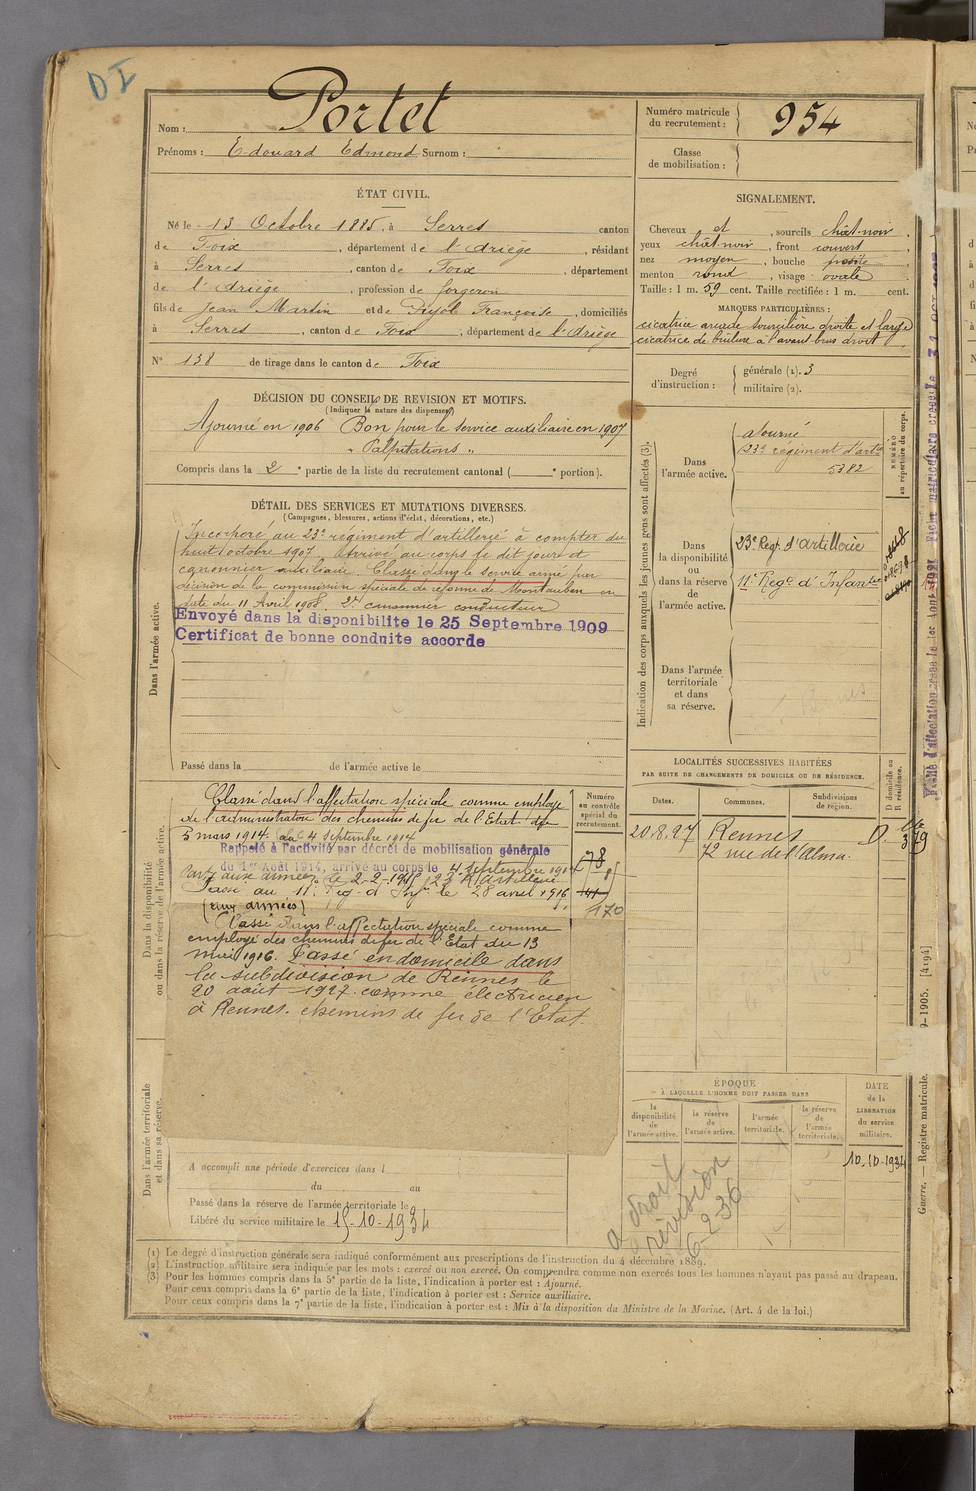 DI
Nom : Portet
Prénoms : Edouard Edmond Surnom :
Numéro matricule du recrutement : 954
Classe de mobilisation :
ÉTAT CIVIL.
Né le 13 Octobre 1885, à Serres canton
de Foix, département de l'Ariège, résidant
à Serres, canton de Foix, département
de l'Ariège, profession de forgeron
fils de Jean Martin et de Pujole Françoise, domiciliés
à Serres, canton de Foix, département de l'Ariège
N° 138 de tirage dans le canton de Foix
SIGNALEMENT.
Cheveux et, sourcils chât-noir,
yeux chât-noir, front couvert
nez moyen, bouche petite
menton rond, visage ovale
Taille : 1 m. 59 cent. Taille rectifiée : 1 m. cent.
MARQUES PARTICULIÈRES :
cicatrice arcade sourcilière droite et large
cicatrice de brûlure à l'avant bras droit.
Degré d'instruction :
générale (1). 3
militaire (2).
DÉCISION DU CONSEIL DE REVISION ET MOTIFS.
(Indiquer la nature des dispenses)
Ajourné en 1906 Bon pour le service auxiliaire en 1907
" Palpitations "
Compris dans la 2e partie de la liste du recrutement cantonal ( e portion).
DÉTAIL DES SERVICES ET MUTATIONS DIVERSES.
(Campagnes, blessures, actions d'éclat, décorations, etc.)
Dans l'armée active.
Incorporé au 23e régiment d'artillerie à compter du
huit octobre 1907. Arrivé au corps le dit jour et
canonnier auxiliaire. Classé dans le service armé par
décision de la commission spéciale de réforme de Montauban en
date du 11 Avril 1908. 2e canonnier conducteur
Envoyé dans la disponibilite le 25 Septembre 1909
Certificat de bonne conduite accorde
Passé dans la de l'armée active le
Indication des corps auxquels les jeunes gens sont affectés (3).
NUMÉRO au répertoire du corps.
Dans l'armée active.
ajourné
23e régiment d'artie
5382
Dans la disponibilité ou dans la réserve de l'armée active.
23e Régt. d'artillerie
11e Regt d'Infanterie
Dans l'armée territoriale et dans sa réserve.
LOCALITÉS SUCCESSIVES HABITÉES
PAR SUITE DE CHANGEMENTS DE DOMICILE OU DE RÉSIDENCE.
Dates.
Communes.
Subdivisions de région.
D domicile ou R résidence.
20.8.27 Rennes D.
72 rue de l'Alma.
Dans la disponibilité ou dans la réserve de l'armée active.
Numéro au contrôle spécial du recrutement.
Classé dans l'affectation spéciale comme employé
de l'administration des chemins de fer de l'Etat du
3 mars 1914 au 4 septembre 1914
Rappelé à l'activité par décret de mobilisation générale
du 1er Août 1914, arrivé au corps le 4 septembre 1914
Passé au 11e Rég. d'Inf. le 28 avril 1916.
(aux armées)
170
Classé dans l'affectation spéciale comme
employé des chemins de fer de l'Etat du 13
mai 1916. Passé en domicile dans
la subdivision de Rennes le
20 août 1927. comme électricien
à Rennes. chemins de fer de l'Etat
ÉPOQUE
À LAQUELLE L'HOMME DOIT PASSER DANS
la disponibilité de l'armée active.
la réserve de l'armée active.
l'armée territoriale.
la réserve de l'armée territoriale.
DATE de la LIBÉRATION du service militaire.
10.10.1934
a droit
révision
6-2-36
Dans l'armée territoriale et dans sa réserve.
A accompli une période d'exercices dans l
du au
Passé dans la réserve de l'armée territoriale le
Libéré du service militaire le 15-10-1934
(1) Le degré d'instruction générale sera indiqué conformément aux prescriptions de l'instruction du 4 décembre 1889.
(2) L'instruction militaire sera indiquée par les mots : exercé ou non exercé. On comprendra comme non exercés tous les hommes n'ayant pas passé au drapeau.
(3) Pour les hommes compris dans la 5e partie de la liste, l'indication à porter est : Ajourné.
Pour ceux compris dans la 6e partie de la liste, l'indication à porter est : Service auxiliaire.
Pour ceux compris dans la 7e partie de la liste, l'indication à porter est : Mis à la disposition du Ministre de la Marine. (Art. 4 de la loi.)
Guerre. Registre matricule.
9-1905. [4194]